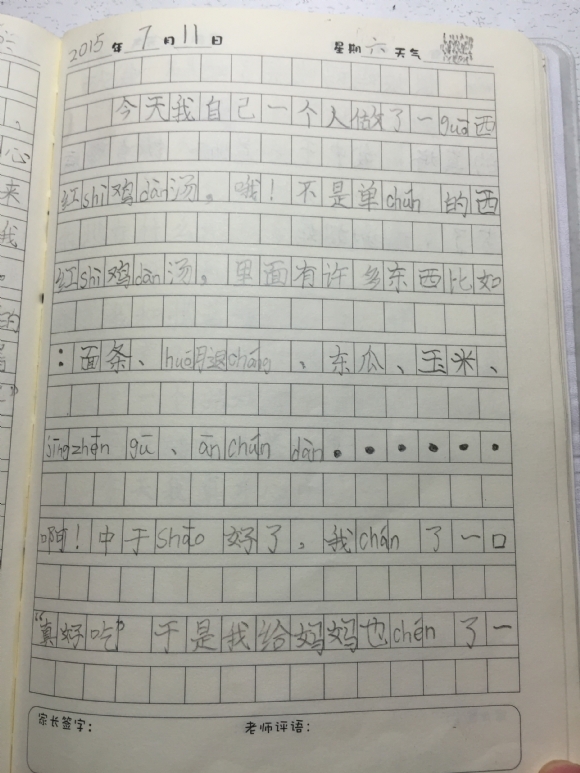 2015年7月11日 星期六天气
今天我自己一个人做了一guō西
红shì鸡dàn汤。哦！不是单chún的西
红shì鸡dàn汤。里面有许多东西比如
：面条、huǒ腿cháng、东瓜、玉米、
jīngzhēn gū、ān chún dàn······
啊！中于shāo好了，我chán了一口
“真好吃”于是我给妈妈也chén了一
家长签字： 老师评语：